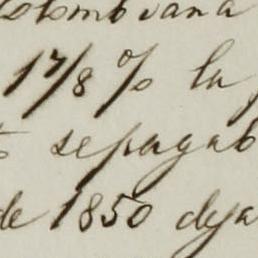 Colombiana
17/8 % la
se pagab
de 1850 deja